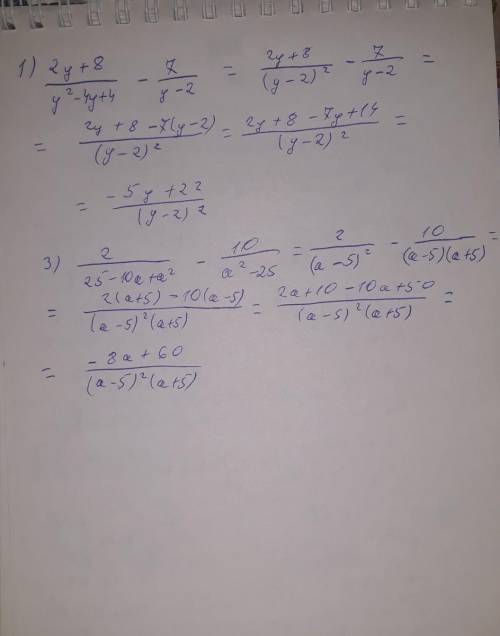 1) (2y+8)/(y²-4y+4) - 7/(y-2) = (2y+8)/(y-2)² - 7/(y-2) =
= (2y+8-7(y-2))/(y-2)² = (2y+8-7y+14)/(y-2)² =
= (-5y+22)/(y-2)²
3) 2/(25-10a+a²) - 10/(a²-25) = 2/(a-5)² - 10/((a-5)(a+5)) =
= (2(a+5)-10(a-5))/((a-5)²(a+5)) = (2a+10-10a+50)/((a-5)²(a+5)) =
= (-8a+60)/((a-5)²(a+5))